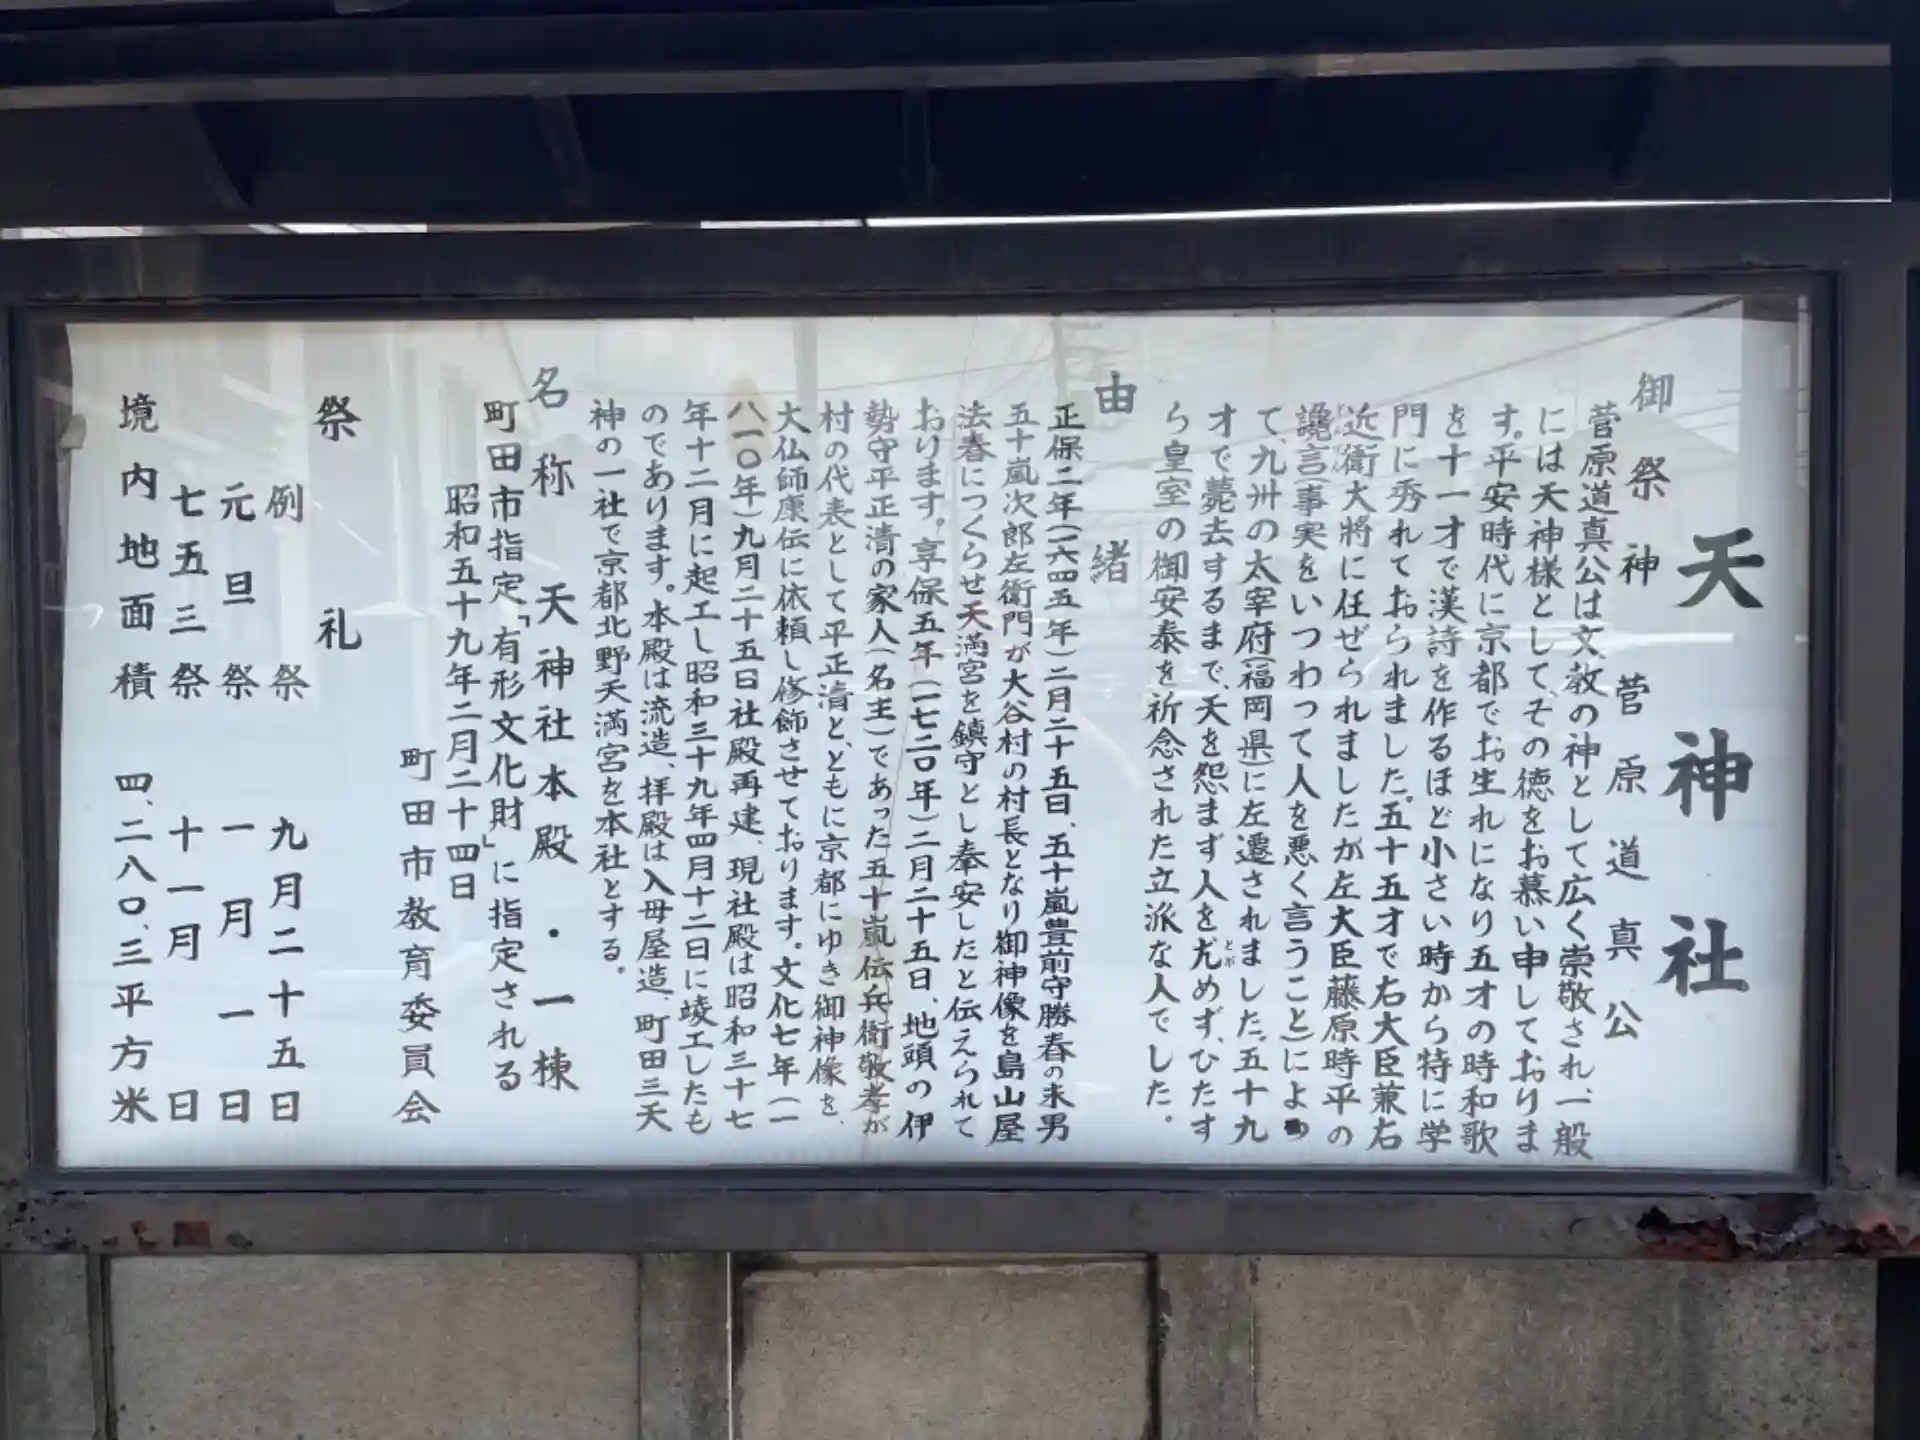 天神社
御祭神 菅原道真公
菅原道真公は文教の神として広く崇敬され、一般
には天神様として、その徳をお慕い申しておりま
す。平安時代に京都でお生れになり五才の時和歌
を十一才で漢詩を作るほど小さい時から特に学
門に秀れておられました。五十五才で右大臣兼右
近衛大将に任ぜられましたが左大臣藤原時平の
讒言(事実をいつわって人を悪く言うこと)によっ
て、九州の太宰府(福岡県)に左遷されました。五十九
才で薨去するまで、天を怨まず人を尤めず、ひたす
とが
ら皇室の御安泰を祈念された立派な人でした。
由緒
正保二年(一六四五年)二月二十五日、五十嵐豊前守勝春の末男
五十嵐次郎左衛門が大谷村の村長となり御神像を島山屋
法春につくらせ天満宮を鎮守とし奉安したと伝えられて
おります。享保五年(一七二〇年)二月二十五日、地頭の伊
勢守平正清の家人(名主)であった五十嵐伝兵衛敬孝が
村の代表として平正清と、ともに京都にゆき御神像を、
大仏師康伝に依頼し修飾させております。文化七年(一
八一〇年)九月二十五日社殿再建、現社殿は昭和三十七
年十二月に起工し昭和三十九年四月十二日に竣工したも
のであります。本殿は流造、拝殿は入母屋造、町田三天
神の一社で京都北野天満宮を本社とする。
名称 天神社本殿・一棟
町田市指定「有形文化財」に指定される
昭和五十九年二月二十四日
町田市教育委員会
祭礼
例祭 九月二十五日
元旦祭 一月一日
七五三祭 十一月 日
境内地面積 四、二八〇、三平方米